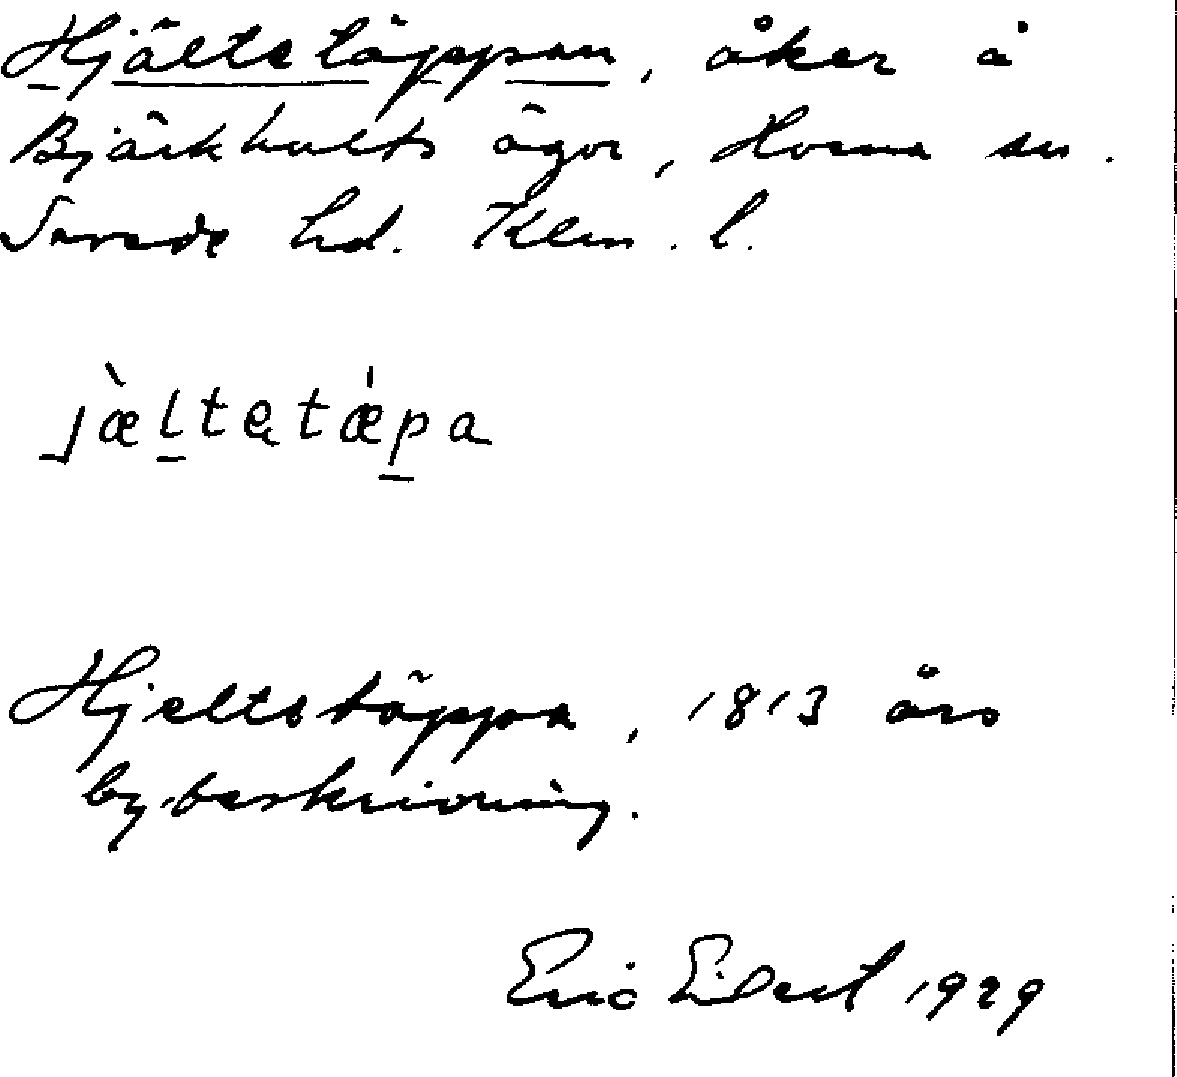 Hjältetäppan, åker å
Björkhults ägor, Horna sn.
Sevede hd. Klm. l.
jæ̀ltetǽpa
Hjeltetäppa, 1813 års
by-beskrivning.
Eric Elert 1929